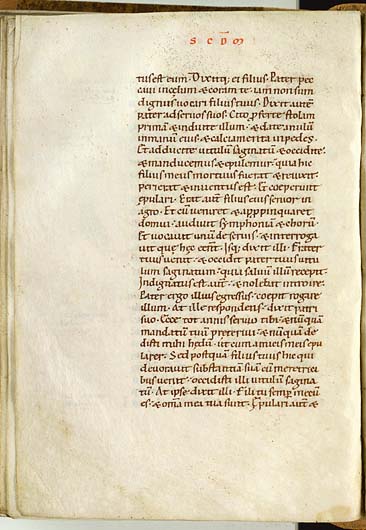 SCDM
tus est eum. Dixitq; ei filius. Pater pec
cavi in celum & coram te. iam non sum
dignus uocari filius tuus. Dixit autē
pater ad seruos suos. Cito pferte stolam
primā & induite illum. & date anulū
in manū eius & calciamenta in pedes.
Et adducite uitulū saginatū & occidite.
& manducemus & epulemur. quia hic
filius meus mortuus fuerat & reuixit.
perierat & inuentus est. Et ceperunt
epulari. Erat aūt filius eius senior in
agro. Et cū ueniret & appinquaret
domui. audiuit symphoniā & chorū.
Et uocauit unū de seruis & interroga
uit que hec eent. Isq; dixit illi. Frater
tuus uenit. & occidit pater tuus uitu
lum saginatum. quia saluū illū recepit.
Indignatus est aūt. & nolebat introire.
Pater ergo illius egressus. coepit rogare
illum. At ille respondens. dixit patri
suo. Ecce tot annis seruio tibi & nūquā
mandatum tuū preteriui. & nūquā de
disti mihi hedū. ut cum amicis meis epu
larer. Sed postquā filius tuus hic qui
deuorauit substantiā suā cū meretrici
bus uenit. occidisti illi uitulū sagina
tū. At ipse dixit illi. Fili tu semp mecū
es. & omīa mea tua sunt. Epulari autē &